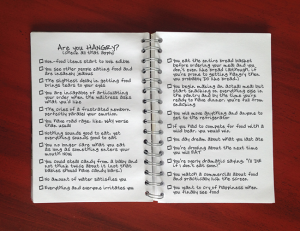 Are you HANGRY?
(check all that apply)
Non-food items start to look edible
You see other people eating food and
are insanely jealous
The slightest delay in getting food
brings tears to your eyes
You are incapable of articulating
your order when the waitress asks
what you'd like
The cries of a frustrated newborn
perfectly parallel your emotion
You have road rage, like, way worse
than usual
Nothing sounds good to eat, yet
everything sounds good to eat
You no longer care what you eat
as long as something enters your
mouth now
You could steal candy from a baby and
not think twice about it (not that
babies should have candy, bare.)
No amount of water satisfies you
Everything and everyone irritates you
You eat the entire bread basket
before ordering your meal and you
don't even like bread (although if
you're prone to getting hangry then
you probably DO like bread.)
You begin making an actual meal but
start snacking on everything else in
the pantry and by the time you're
ready to have dinner, you're full from
snacking
You will move anything and anyone to
get to the refrigerator
If you had to compete for food with a
wild bear, you would win.
You day dream about what you last ate
You're drooling about the next time
you will eat
You're overly dramatic saying "I'll DIE
if I don't eat soon!"
You watch a commercial about food
and practically lick the screen
You want to cry of happiness when
you finally see food